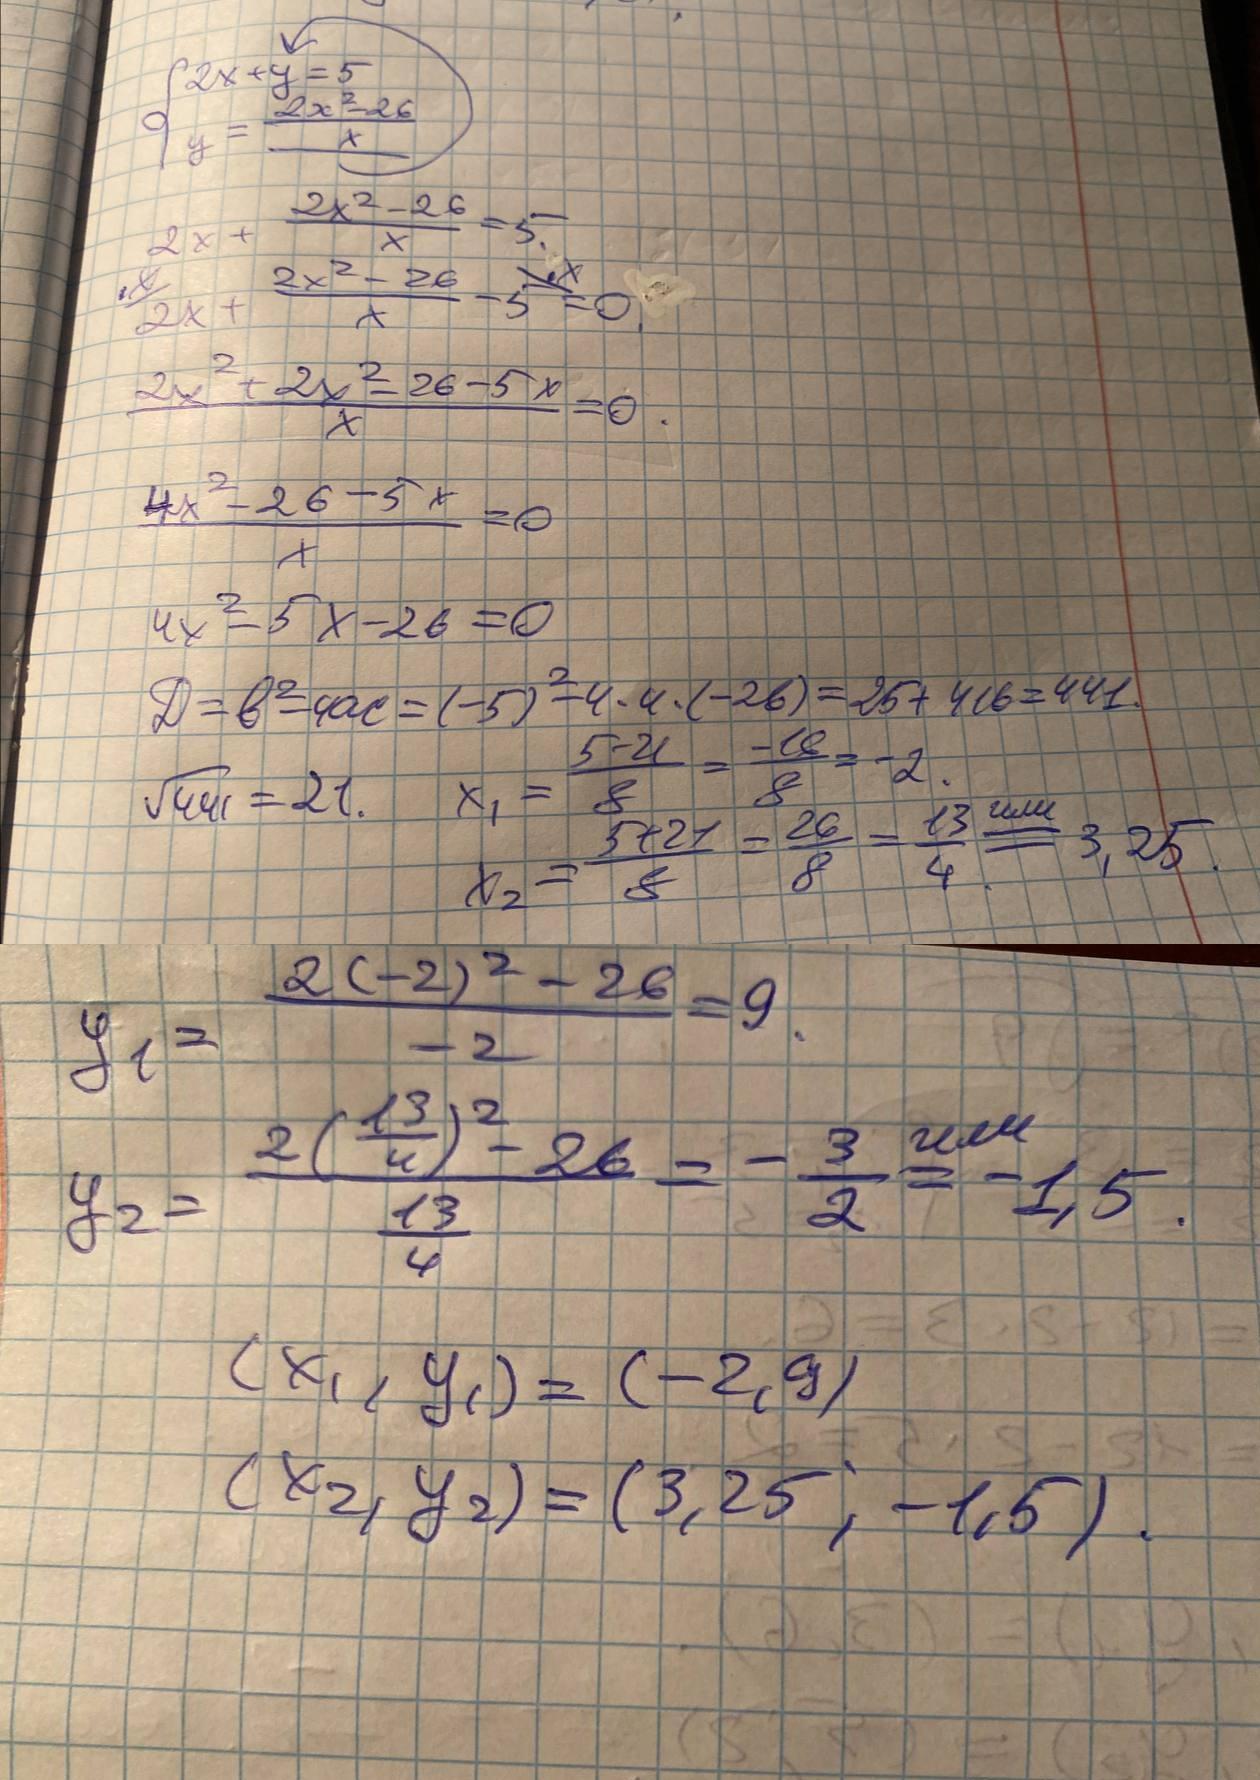 2x+y=5
y = (2x²-26)/x
2x + (2x²-26)/x = 5.
2x + (2x²-26)/x - 5 = 0
(2x²+2x²-26-5x)/x = 0.
(4x²-26-5x)/x = 0
4x²-5x-26=0
Д=в²-4ас=(-5)²-4·4·(-26)=25+416=441.
√441 = 21. x₁ = (5-21)/8 = -16/8 = -2.
x₂ = (5+21)/8 = 26/8 = 13/4 или 3,25.
y₁ = (2(-2)²-26)/-2 = 9.
y₂ = (2(13/4)²-26)/(13/4) = -3/2 или = -1,5.
(x₁, y₁) = (-2, 9)
(x₂, y₂) = (3,25; -1,5).